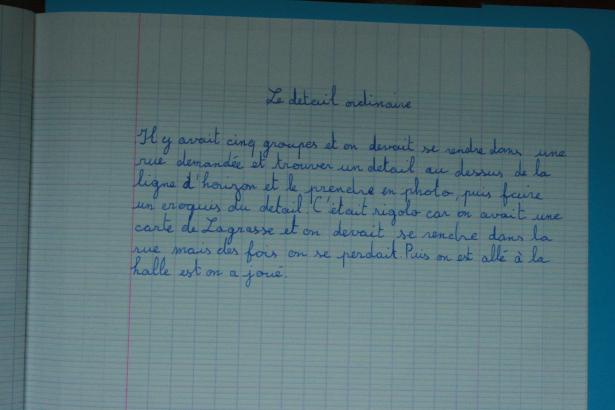 Le detail ordinaire
Il y avait cinq groupes et on devait se rendre dans une
rue demandée et trouver un detail au dessus de la
ligne d'horizon et le prendre en photo, puis faire
un croquis du detail. C'était rigolo car on avait une
carte de Lagrasse et on devait se rendre dans la
rue mais des fois on se perdait. Puis on est allé à la
halle est on a joué.